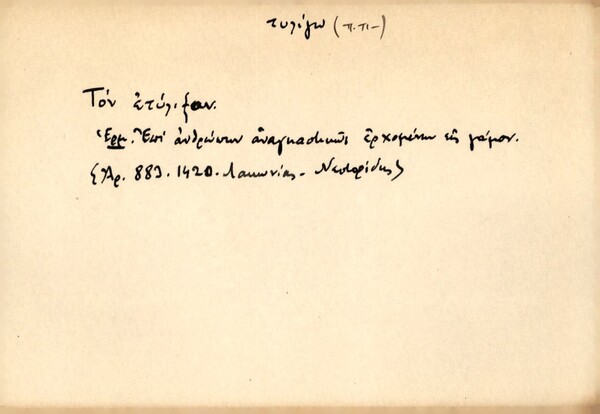 τυλίγω (π.π-)
Τόν ἐτύλιξαν.
Ἑρμ. Ἐπί ἀνθρώπων ἀναγκαστικῶς ἐρχομένων εἰς γάμον.
(Ἀρ. 883. 1420. Λακωνίας - Νεστορίδης)